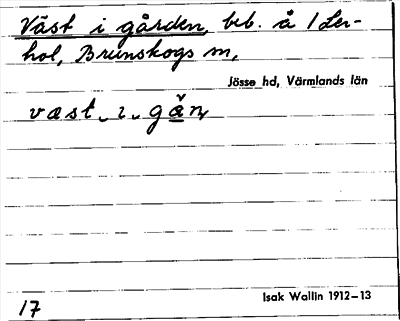 Väst i gården, beb. å 1 Ler-
hol, Brunskogs sn,
Jösse hd, Värmlands län
Isak Wallin 1912–13
17